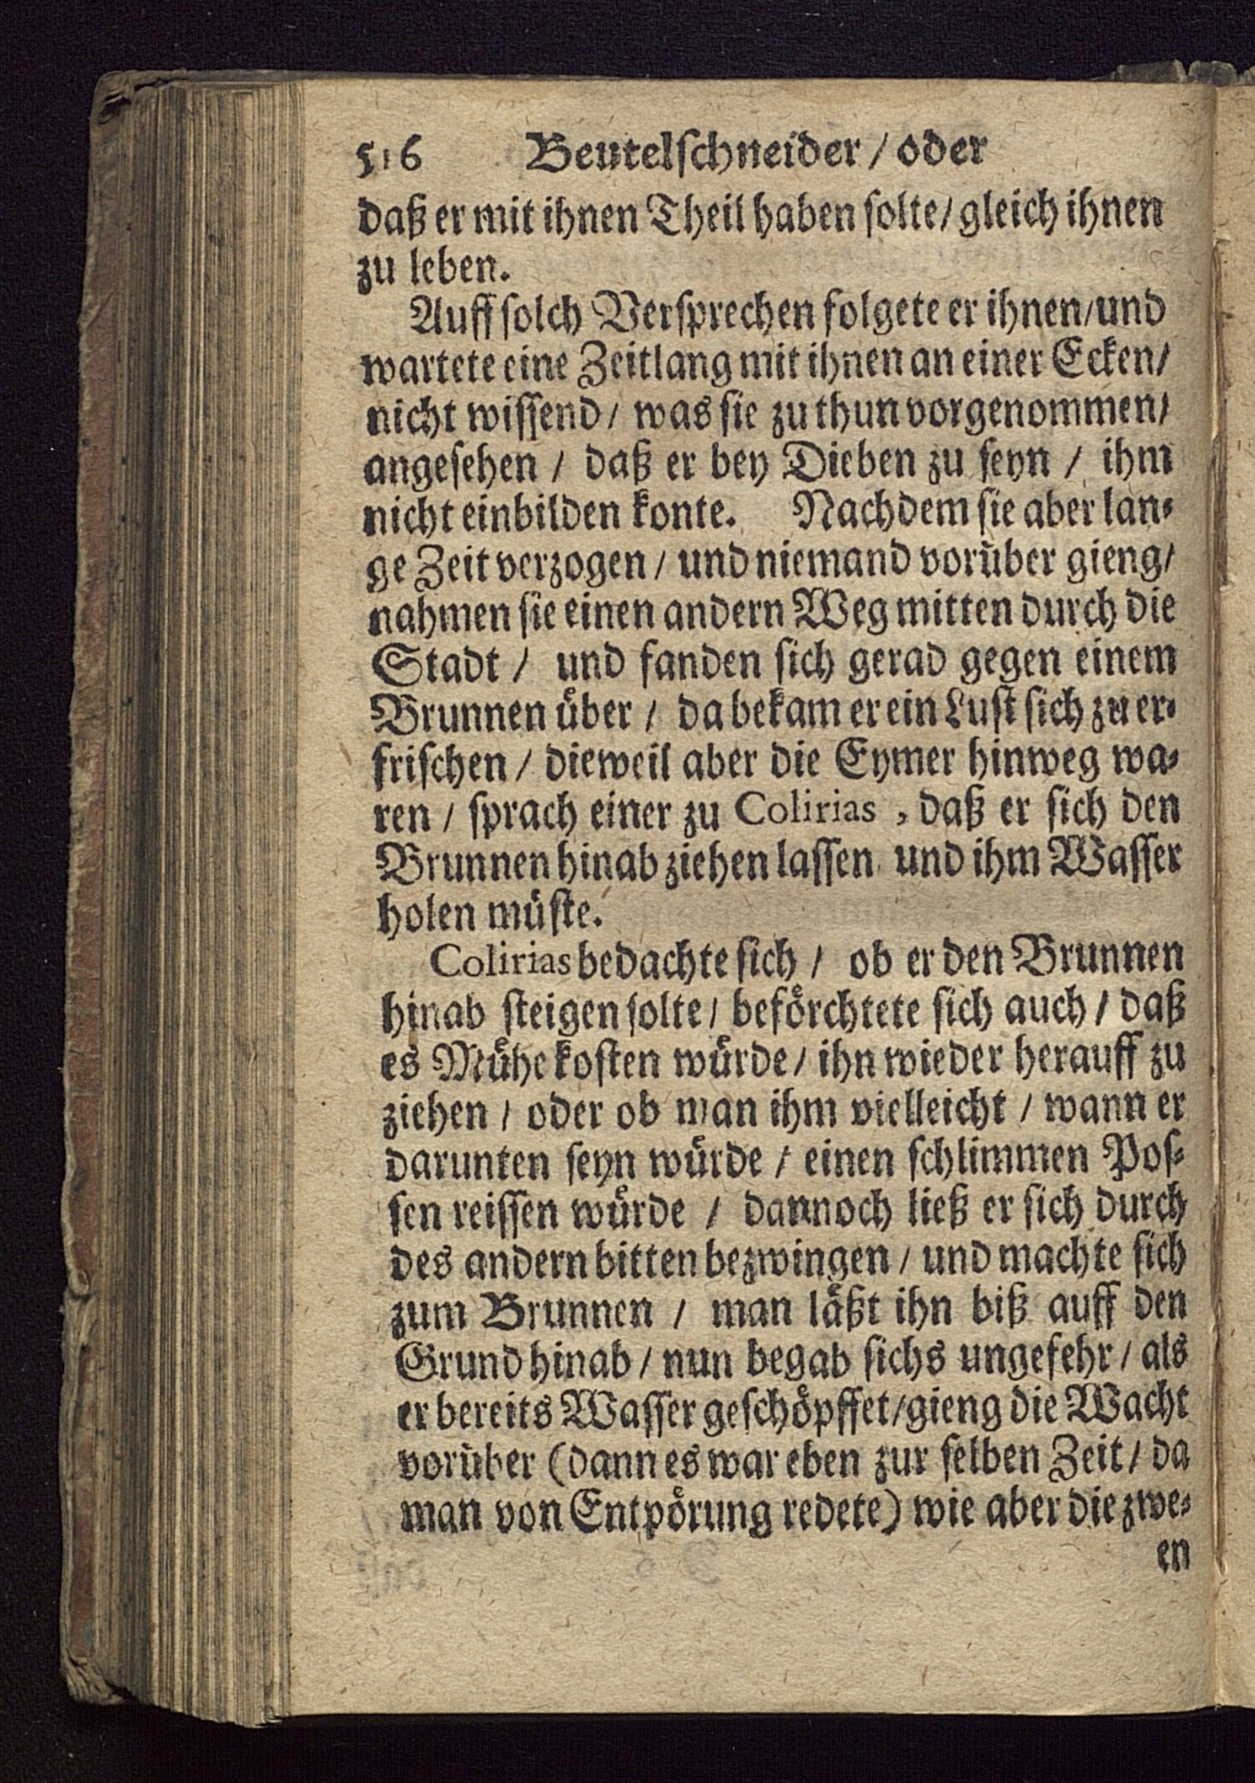 516 Beutelschneider / oder
daß er mit ihnen Theil haben solte / gleich ihnen
zu leben.
Auff solch Versprechen folgete er ihnen / und
wartete eine Zeitlang mit ihnen an einer Ecken /
nicht wissend / was sie zu thun vorgenommen /
angesehen / daß er bey Dieben zu seyn / ihm
nicht einbilden konte. Nachdem sie aber lan-
ge Zeit verzogen / und niemand vorüber gieng /
nahmen sie einen andern Weg mitten durch die
Stadt / und fanden sich gerad gegen einem
Brunnen über / da bekam er ein Lust sich zu er-
frischen / dieweil aber die Eymer hinweg wa-
ren / sprach einer zu Colirias , daß er sich den
Brunnen hinab ziehen lassen und ihm Wasser
holen müste.
Colirias bedachte sich / ob er den Brunnen
hinab steigen solte / beförchtete sich auch / daß
es Mühe kosten würde / ihn wieder herauff zu
ziehen / oder ob man ihm vielleicht / wann er
darunten seyn würde / einen schlimmen Pos-
sen reissen würde / dannoch ließ er sich durch
des andern bitten bezwingen / und machte sich
zum Brunnen / man läßt ihn biß auff den
Grund hinab / nun begab sichs ungefehr / als
er bereits Wasser geschöpffet / gieng die Wacht
vorüber (dann es war eben zur selben Zeit / da
man von Entpörung redete) wie aber die zwe-
en